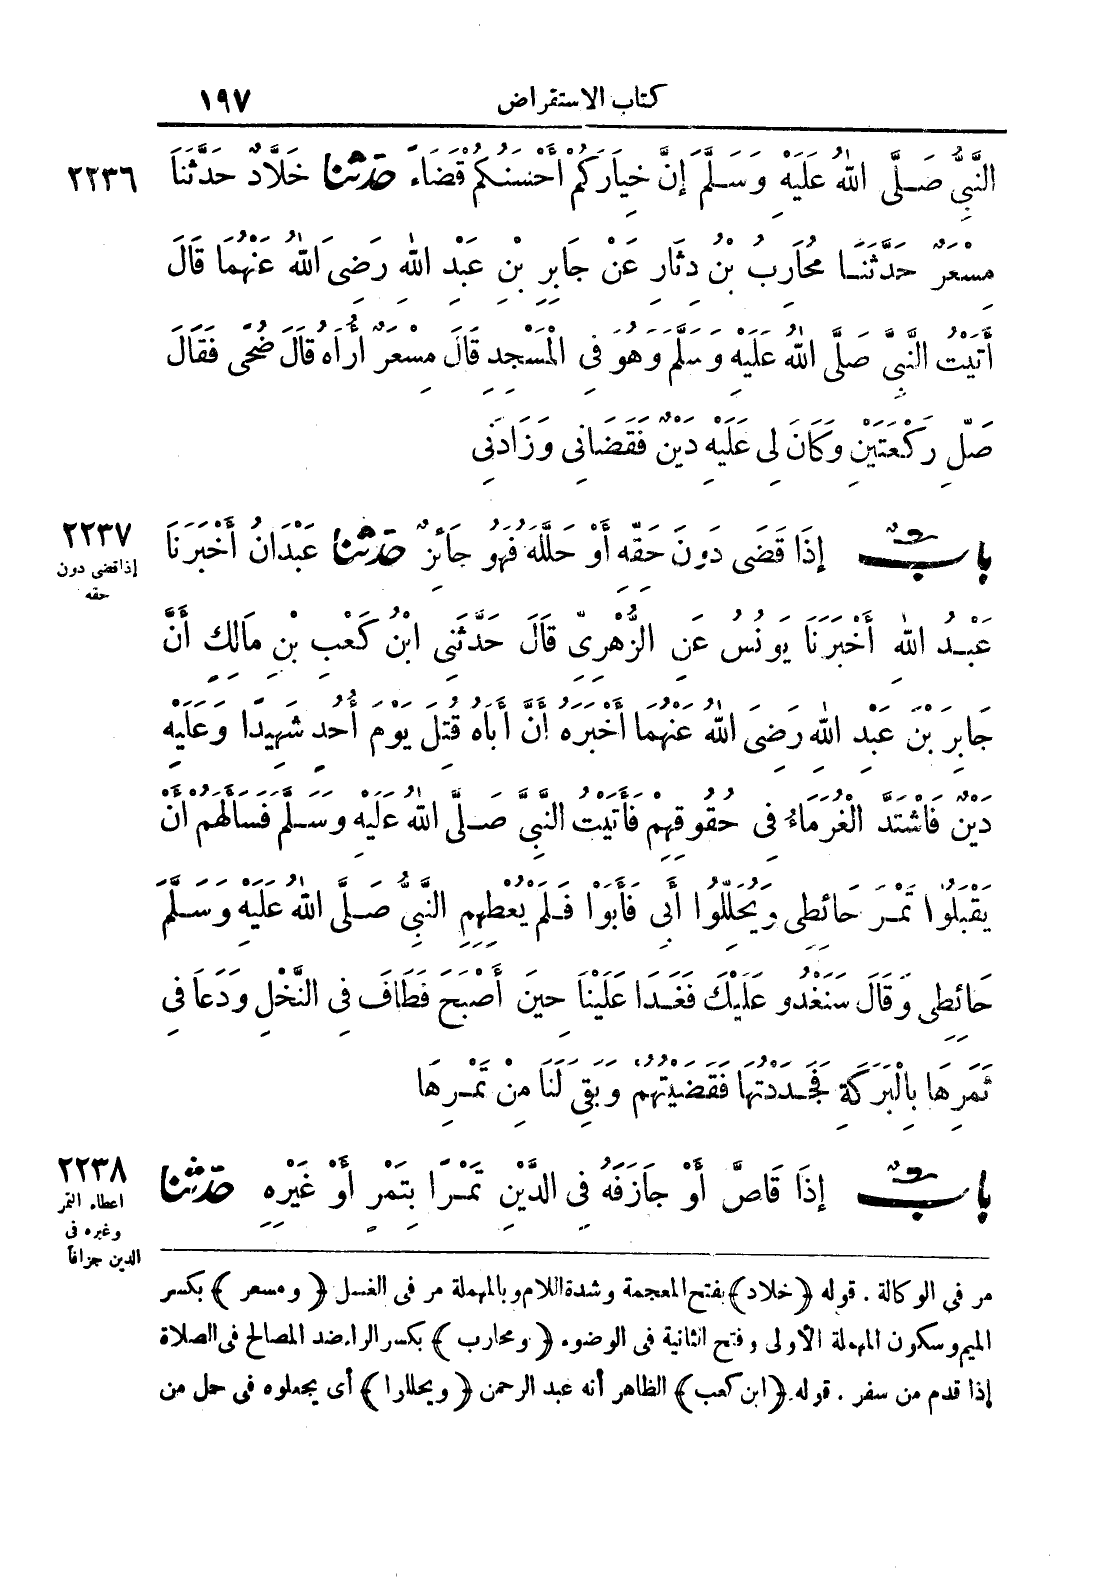 كتاب الاستقراض ١٩٧
النَّبِيُّ صَلَّى اللهُ عَلَيْهِ وَسَلَّمَ إِنَّ خِيَارَكُمْ أَحْسَنُكُمْ قَضَاءً حَدَّثَنَا خَلَّادٌ حَدَّثَنَا ٢٢٣٦
مِسْعَرٌ حَدَّثَنَا مُحَارِبُ بْنُ دِثَارٍ عَنْ جَابِرِ بْنِ عَبْدِ اللهِ رَضِيَ اللهُ عَنْهُمَا قَالَ
أَتَيْتُ النَّبِيَّ صَلَّى اللهُ عَلَيْهِ وَسَلَّمَ وَهُوَ فِي الْمَسْجِدِ قَالَ مِسْعَرٌ أُرَاهُ قَالَ ضُحًى فَقَالَ
صَلِّ رَكْعَتَيْنِ وَكَانَ لِي عَلَيْهِ دَيْنٌ فَقَضَانِي وَزَادَنِي
بابٌ إِذَا قَضَى دُونَ حَقِّهِ أَوْ حَلَّلَهُ فَهُوَ جَائِزٌ حَدَّثَنَا عَبْدَانُ أَخْبَرَنَا ٢٢٣٧
إذا قضى دون
حقه
عَبْدُ اللهِ أَخْبَرَنَا يُونُسُ عَنِ الزُّهْرِيِّ قَالَ حَدَّثَنِي ابْنُ كَعْبِ بْنِ مَالِكٍ أَنَّ
جَابِرَ بْنَ عَبْدِ اللهِ رَضِيَ اللهُ عَنْهُمَا أَخْبَرَهُ أَنَّ أَبَاهُ قُتِلَ يَوْمَ أُحُدٍ شَهِيدًا وَعَلَيْهِ
دَيْنٌ فَاشْتَدَّ الْغُرَمَاءُ فِي حُقُوقِهِمْ فَأَتَيْتُ النَّبِيَّ صَلَّى اللهُ عَلَيْهِ وَسَلَّمَ فَسَأَلَهُمْ أَنْ
يَقْبَلُوا تَمْرَ حَائِطِي وَيُحَلِّلُوا أَبِي فَأَبَوْا فَلَمْ يُعْطِهِمِ النَّبِيُّ صَلَّى اللهُ عَلَيْهِ وَسَلَّمَ
حَائِطِي وَقَالَ سَنَغْدُو عَلَيْكَ فَغَدَا عَلَيْنَا حِينَ أَصْبَحَ فَطَافَ فِي النَّخْلِ وَدَعَا فِي
ثَمَرِهَا بِالْبَرَكَةِ فَجَدَدْتُهَا فَقَضَيْتُهُمْ وَبَقِيَ لَنَا مِنْ تَمْرِهَا
بابٌ إِذَا قَاصَّ أَوْ جَازَفَهُ فِي الدَّيْنِ تَمْرًا بِتَمْرٍ أَوْ غَيْرِهِ حَدَّثَنَا ٢٢٣٨
اعطاء التمر
وغيره فى
الدين جزافا
مر فى الوكالة . قوله (خلاد) بفتح المعجمة وشدة اللام وبالمهملة مر فى الغسل (ومسعر) بكسر
الميم وسكون المهملة الأولى وفتح الثانية فى الوضوء (ومحارب) بكسر الراء ضد المصالح فى الصلاة
إذا قدم من سفر . قوله (ابن كعب) الظاهر أنه عبد الرحمن (ويحللوا) أى يجعلوه فى حل من